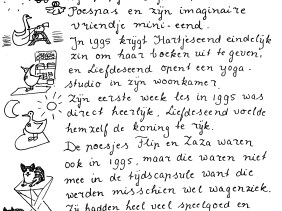 Poespas en zijn imaginaire
vriendje mini-eend.
In 1995 krijgt Hartjeseend eindelijk
zin om haar boeken uit te geven,
en Liefdeseend opent een yoga-
studio in zijn woonkamer.
Zijn eerste week les in 1995 was
direct heerlijk, Liefdeseend voelde
hemzelf de koning te rijk.
De poesjes Flip en Zaza waren
ook in 1995, maar die waren niet
mee in de tijdscapsule want die
werden misschien wel wagenziek.
Zij hadden heel veel speelgoed en